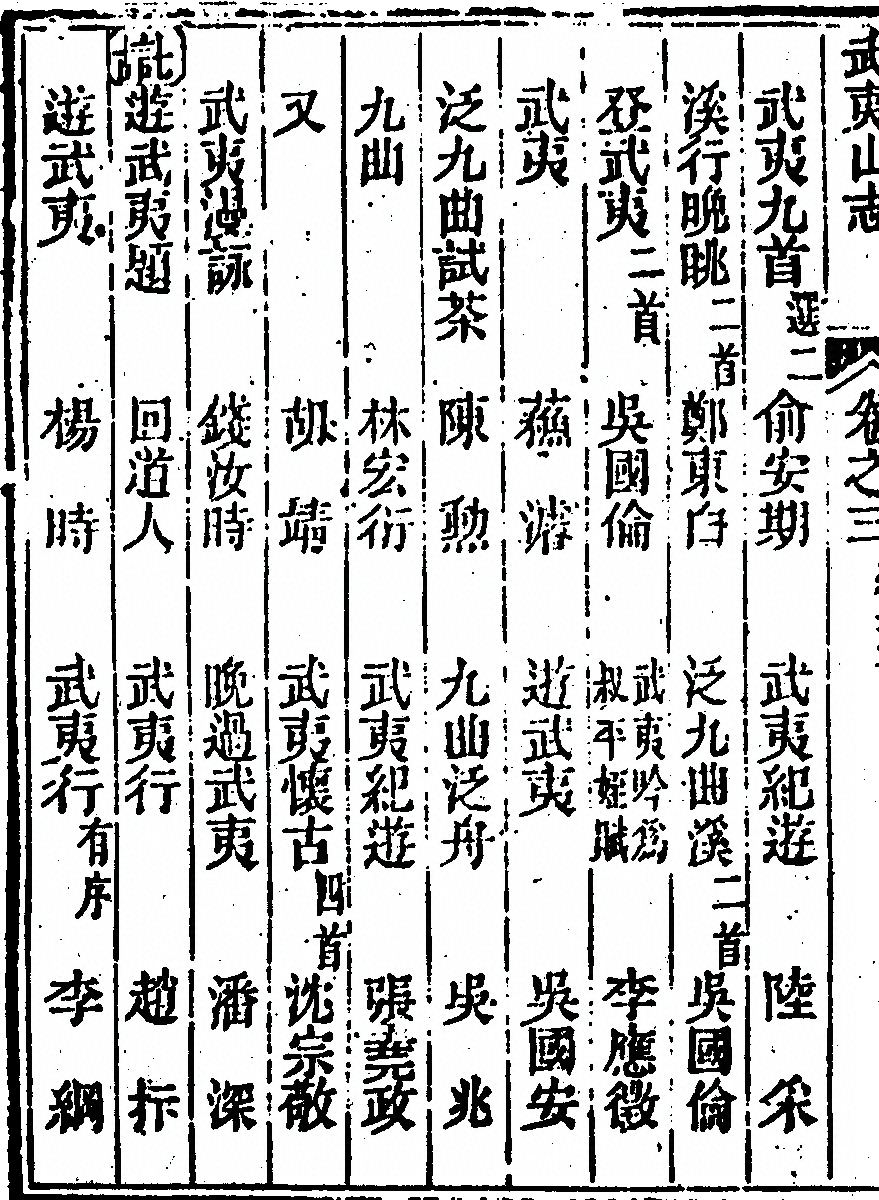 武夷山志 卷之三
武夷九首選二 俞安期 武夷紀遊 陸采
溪行晚眺二首 鄭東白 泛九曲溪二首 吳國倫
登武夷二首 吳國倫 武夷吟為叔平姪賦 李應徵
武夷 蘇濬 遊武夷 吳國安
泛九曲試茶 陳勲 九曲泛舟 吳兆
九曲 林宏衍 武夷紀遊 張堯政
又 胡靖 武夷懷古四首 沈宗敬
武夷漫詠 錢汝時 晚過武夷 潘深
遊武夷題 回道人 武夷行 趙抃
遊武夷 楊時 武夷行有序 李綱